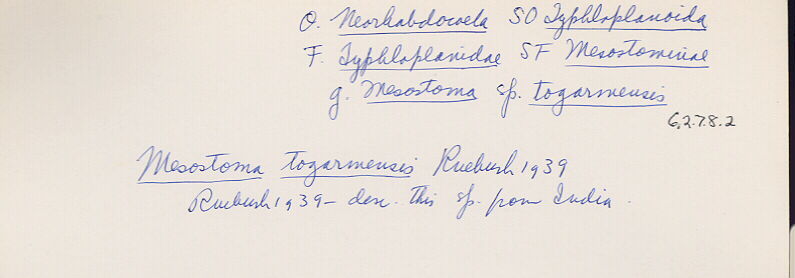 O. Neorhabdocoela SO Typhloplanoida
F. Typhloplanidae SF Mesostominae
g. Mesostoma sp. togarmensis
6.2.7.8.2
Mesostoma togarmensis Ruebush 1939
Ruebush 1939 – desc. this sp. from India.